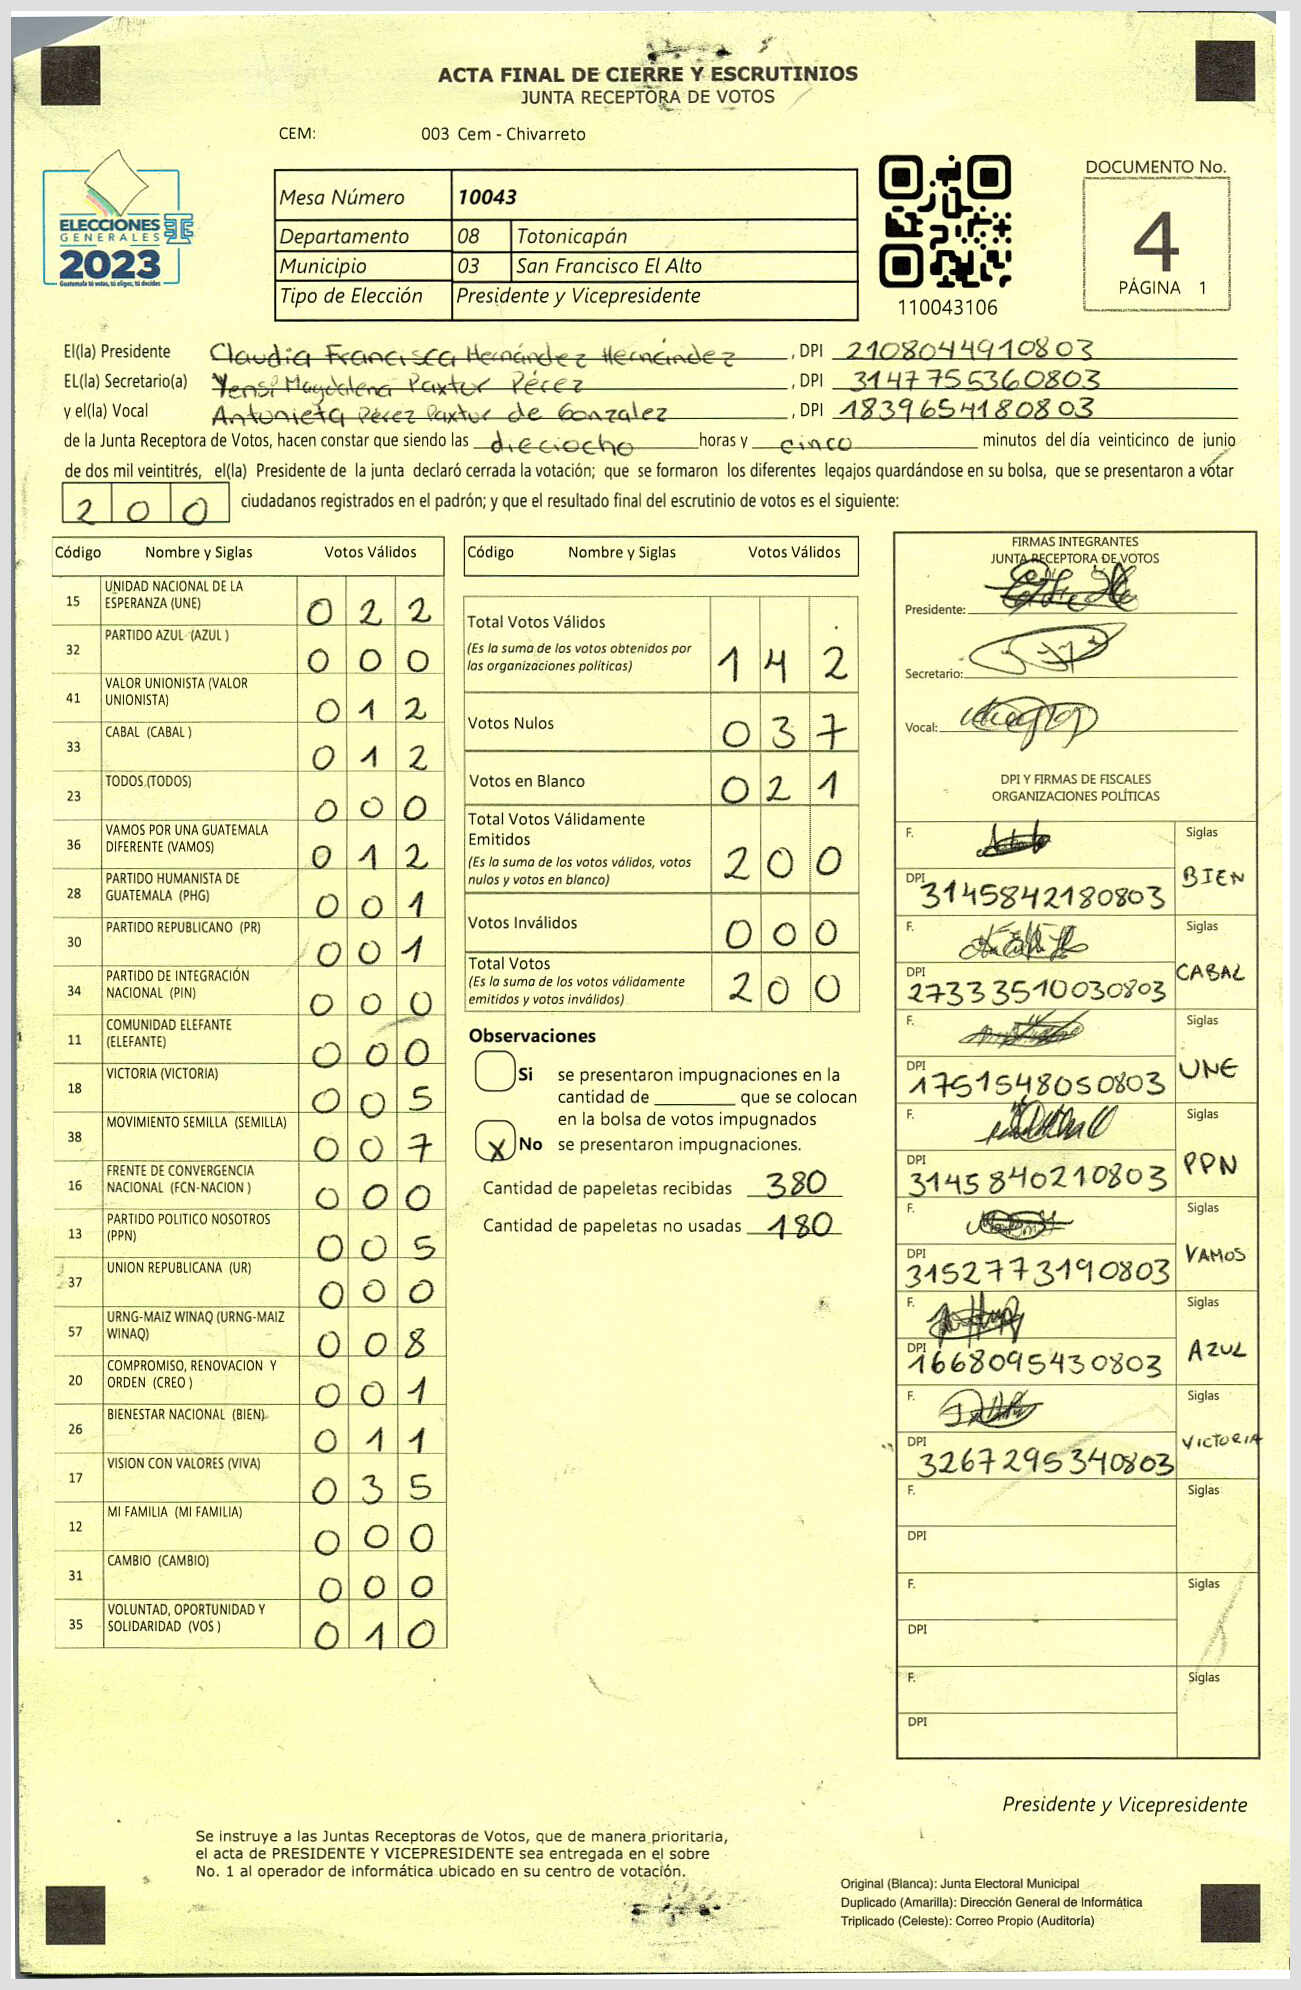 ACTA FINAL DE CIERRE Y ESCRUTINIOS
JUNTA RECEPTORA DE VOTOS
CEM: 003 Cem - Chivarreto
ELECCIONES
GENERALES
2023
Guatemala tú votas, tú eliges, tú decides
Mesa Número 10043
Departamento 08 Totonicapán
Municipio 03 San Francisco El Alto
Tipo de Elección Presidente y Vicepresidente
110043106
DOCUMENTO No.
4
PÁGINA 1
El(la) Presidente Claudia Francisca Hernández Hernández, DPI 2108044910803
EL(la) Secretario(a) Yensi Magdalena Paxtur Pérez, DPI 3147755360803
y el(la) Vocal Antonieta Pérez Paxtur de Gonzalez, DPI 1839654180803
de la Junta Receptora de Votos, hacen constar que siendo las dieciocho horas y cinco minutos del día veinticinco de junio
de dos mil veintitrés, el(la) Presidente de la junta declaró cerrada la votación; que se formaron los diferentes legajos quardándose en su bolsa, que se presentaron a votar
200 ciudadanos registrados en el padrón; y que el resultado final del escrutinio de votos es el siguiente:
Código Nombre y Siglas Votos Válidos
15 UNIDAD NACIONAL DE LA
ESPERANZA (UNE) 022
32 PARTIDO AZUL (AZUL ) 000
41 VALOR UNIONISTA (VALOR
UNIONISTA) 012
33 CABAL (CABAL ) 012
23 TODOS (TODOS) 000
36 VAMOS POR UNA GUATEMALA
DIFERENTE (VAMOS) 012
28 PARTIDO HUMANISTA DE
GUATEMALA (PHG) 001
30 PARTIDO REPUBLICANO (PR) 001
34 PARTIDO DE INTEGRACIÓN
NACIONAL (PIN) 000
11 COMUNIDAD ELEFANTE
(ELEFANTE) 000
18 VICTORIA (VICTORIA) 005
38 MOVIMIENTO SEMILLA (SEMILLA) 007
16 FRENTE DE CONVERGENCIA
NACIONAL (FCN-NACION ) 000
13 PARTIDO POLITICO NOSOTROS
(PPN) 005
37 UNION REPUBLICANA (UR) 000
57 URNG-MAIZ WINAQ (URNG-MAIZ
WINAQ) 008
20 COMPROMISO, RENOVACION Y
ORDEN (CREO ) 001
26 BIENESTAR NACIONAL (BIEN) 011
17 VISION CON VALORES (VIVA) 035
12 MI FAMILIA (MI FAMILIA) 000
31 CAMBIO (CAMBIO) 000
35 VOLUNTAD, OPORTUNIDAD Y
SOLIDARIDAD (VOS ) 010
Código Nombre y Siglas Votos Válidos
Total Votos Válidos
(Es la suma de los votos obtenidos por
las organizaciones políticas) 142
Votos Nulos 037
Votos en Blanco 021
Total Votos Válidamente
Emitidos
(Es la suma de los votos válidos, votos
nulos y votos en blanco) 200
Votos Inválidos 000
Total Votos
(Es la suma de los votos válidamente
emitidos y votos inválidos) 200
Observaciones
Si se presentaron impugnaciones en la
cantidad de ________ que se colocan
en la bolsa de votos impugnados
X No se presentaron impugnaciones.
Cantidad de papeletas recibidas 380
Cantidad de papeletas no usadas 180
FIRMAS INTEGRANTES
JUNTA RECEPTORA DE VOTOS
Presidente:
Secretario:
Vocal:
DPI Y FIRMAS DE FISCALES
ORGANIZACIONES POLÍTICAS
F. Siglas
DPI 3145842180803 BIEN
F. Siglas
DPI 27333510030803 CABAL
F. Siglas
DPI 1751548050803 UNE
F. Siglas
DPI 3145840210803 PPN
F. Siglas
DPI 3152773190803 VAMOS
F. Siglas
DPI 1668095430803 AZUL
F. Siglas
DPI 3267295340803 VICTORIA
F. Siglas
DPI
F. Siglas
DPI
F. Siglas
DPI
Presidente y Vicepresidente
Se instruye a las Juntas Receptoras de Votos, que de manera prioritaria,
el acta de PRESIDENTE Y VICEPRESIDENTE sea entregada en el sobre
No. 1 al operador de informática ubicado en su centro de votación.
Original (Blanca): Junta Electoral Municipal
Duplicado (Amarilla): Dirección General de Informática
Triplicado (Celeste): Correo Propio (Auditoría)